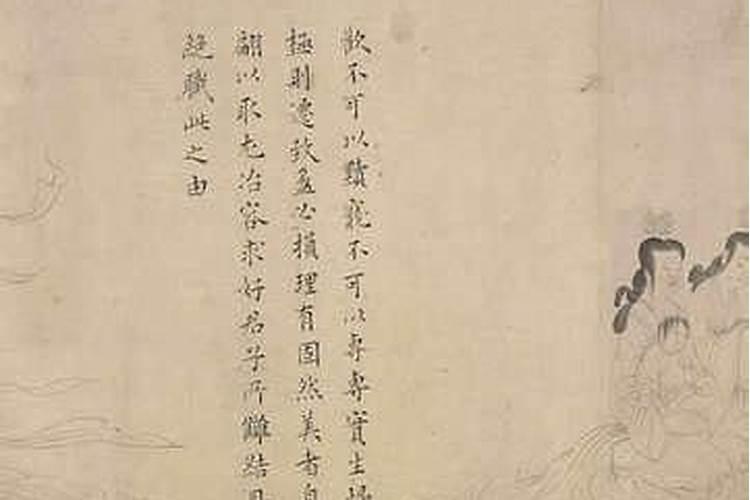 歡不可以黷寵不可以專專實生慢
極則遷致盈必損理有固然美者自
翩以取尤冶容求好君子所讎結
絕職此之由